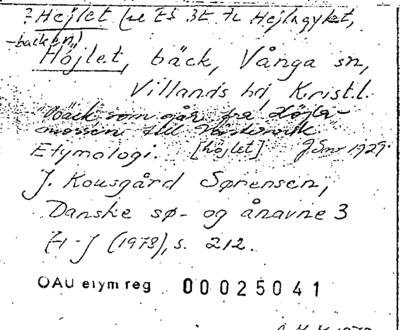 ? Hejlet (se
-backen)
Höjlet, bäck, Vånga sn,
Villands hd, Krist.l.
"Bäck som går fra Höjle-
mossen till
Etymologi. [höjlet] 1929.
J. Kousgård Sørensen,
Danske sø- og ånavne 3
H-J (1978), s. 212.
OAU etym reg 00025041